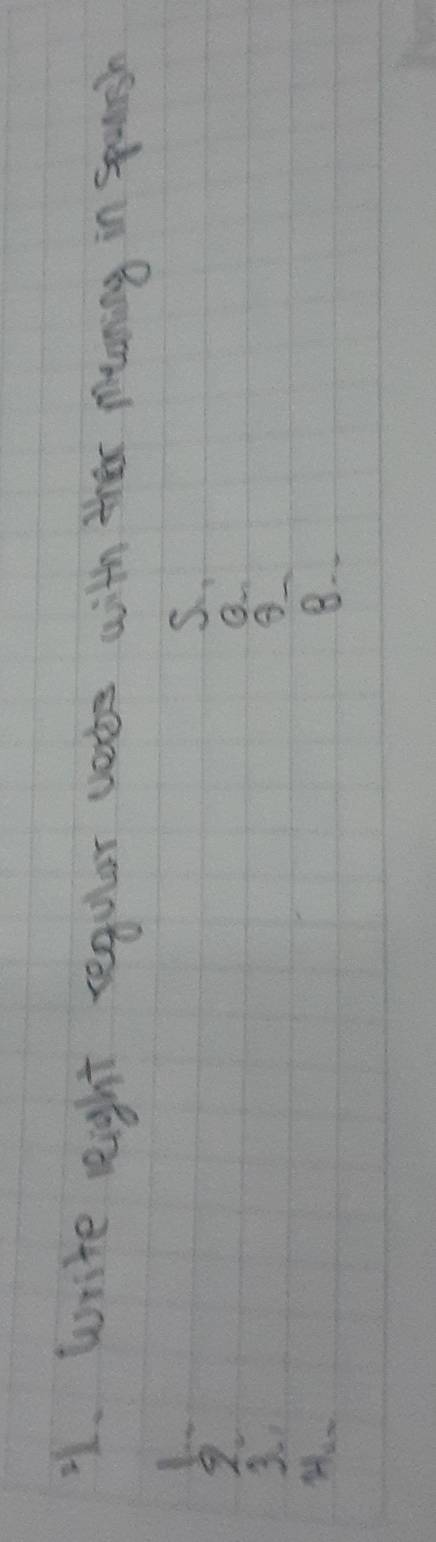 4. Write reight regular verbs with ther meaning in spanish
1.- 5.-
2.- 6.-
3.- 7.-
4.- 8.-